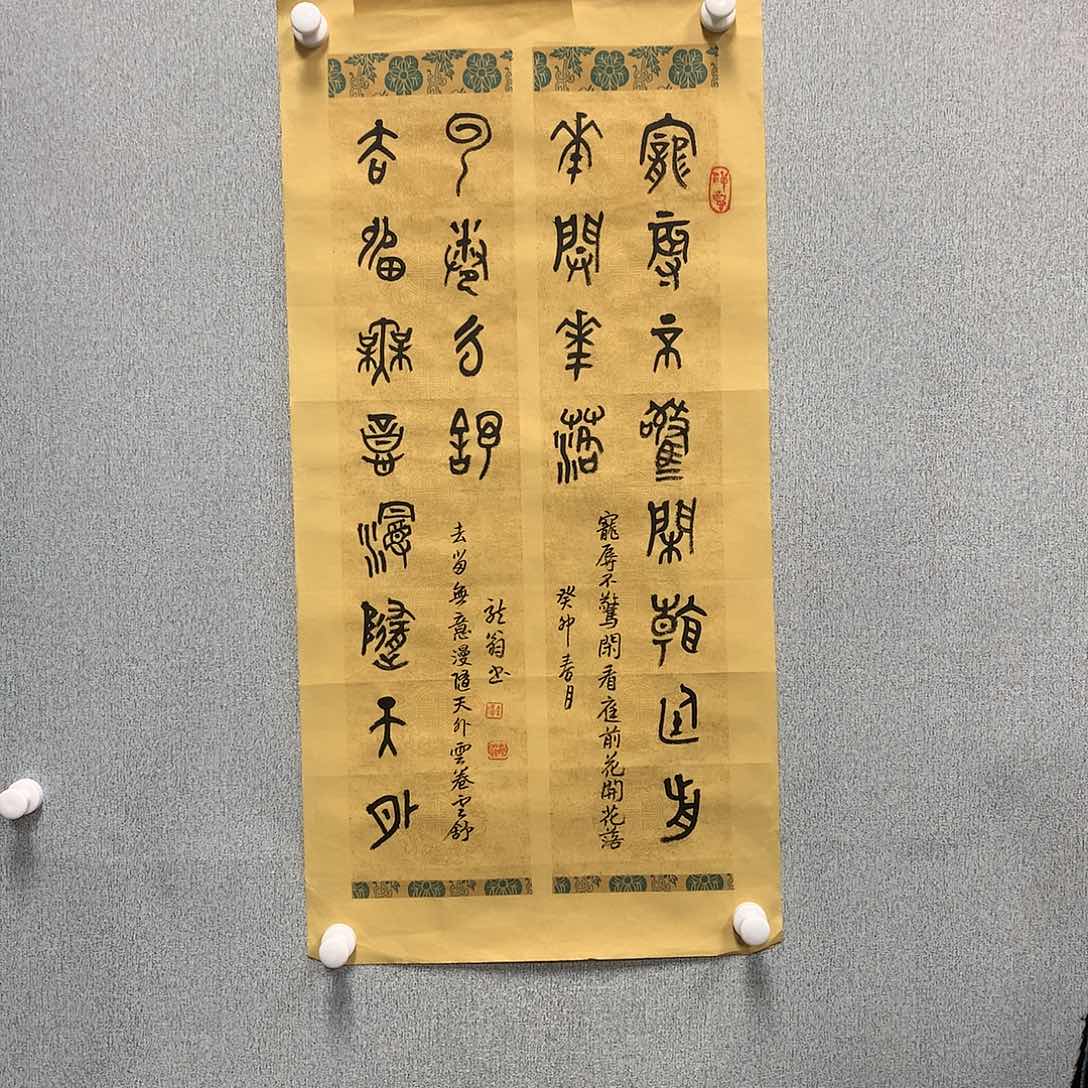 寵辱不驚閑看庭前
花開花落
寵辱不驚閑看庭前花開花落
癸卯春月
去留無意漫隨天外
雲卷雲舒
龍翁书
去留無意漫隨天外雲卷雲舒